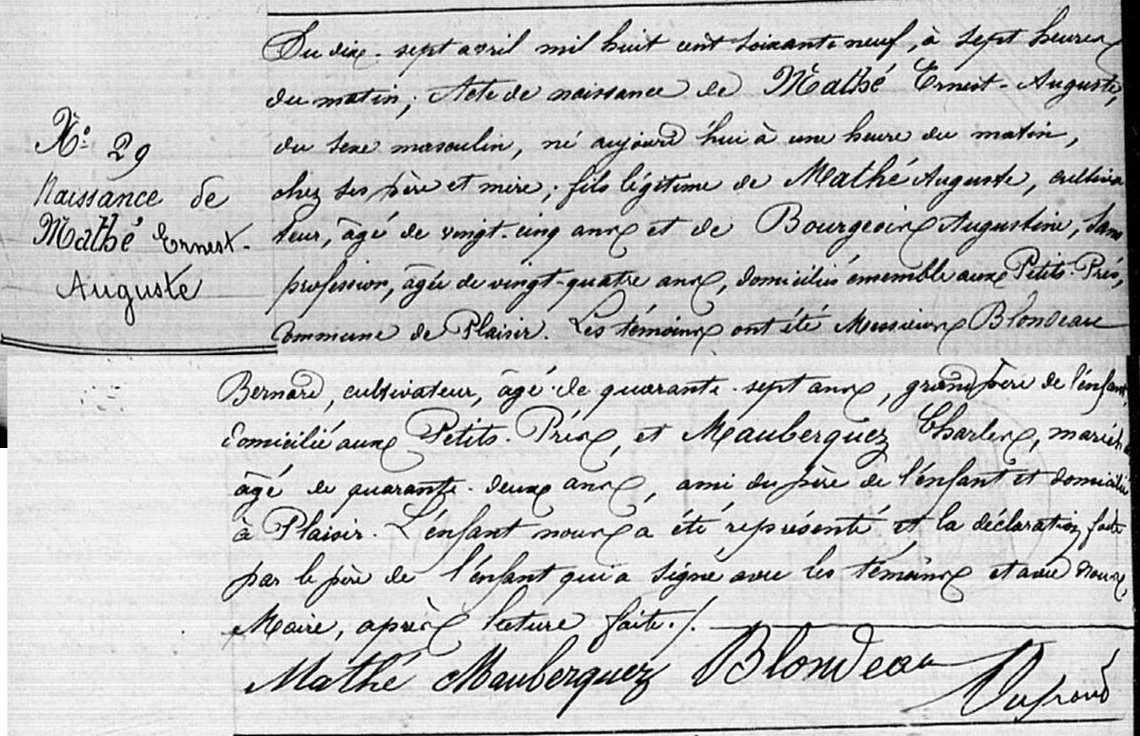 N° 29
Naissance de
Mathé Ernest-
Auguste
Du dix-sept avril mil huit cent soixante neuf, à sept heures
du matin; Acte de naissance de Mathé Ernest-Auguste,
du sexe masculin, né aujourd'hui à une heure du matin,
chez ses père et mère; fils légitime de Mathé Auguste, cultiva
teur, âgé de vingt-cinq ans et de Bourgeois Augustine, sans
profession, âgée de vingt-quatre ans, domiciliés ensemble aux Petits-Prés,
Commune de Plaisir. Les témoins ont été Messieurs Blondeau
Bernard, cultivateur, âgé de quarante-sept ans, grand père de l'enfant,
domicilié aux Petits-Prés, et Mauberquez Charles, maréchal
âgé de quarante-deux ans, ami du père de l'enfant et domicilié
à Plaisir. L'enfant nous a été représenté et la déclaration faite
par le père de l'enfant qui a signé avec les témoins et avec nous,
Maire, après lecture faite./.
Mathé Mauberquez Blondeau